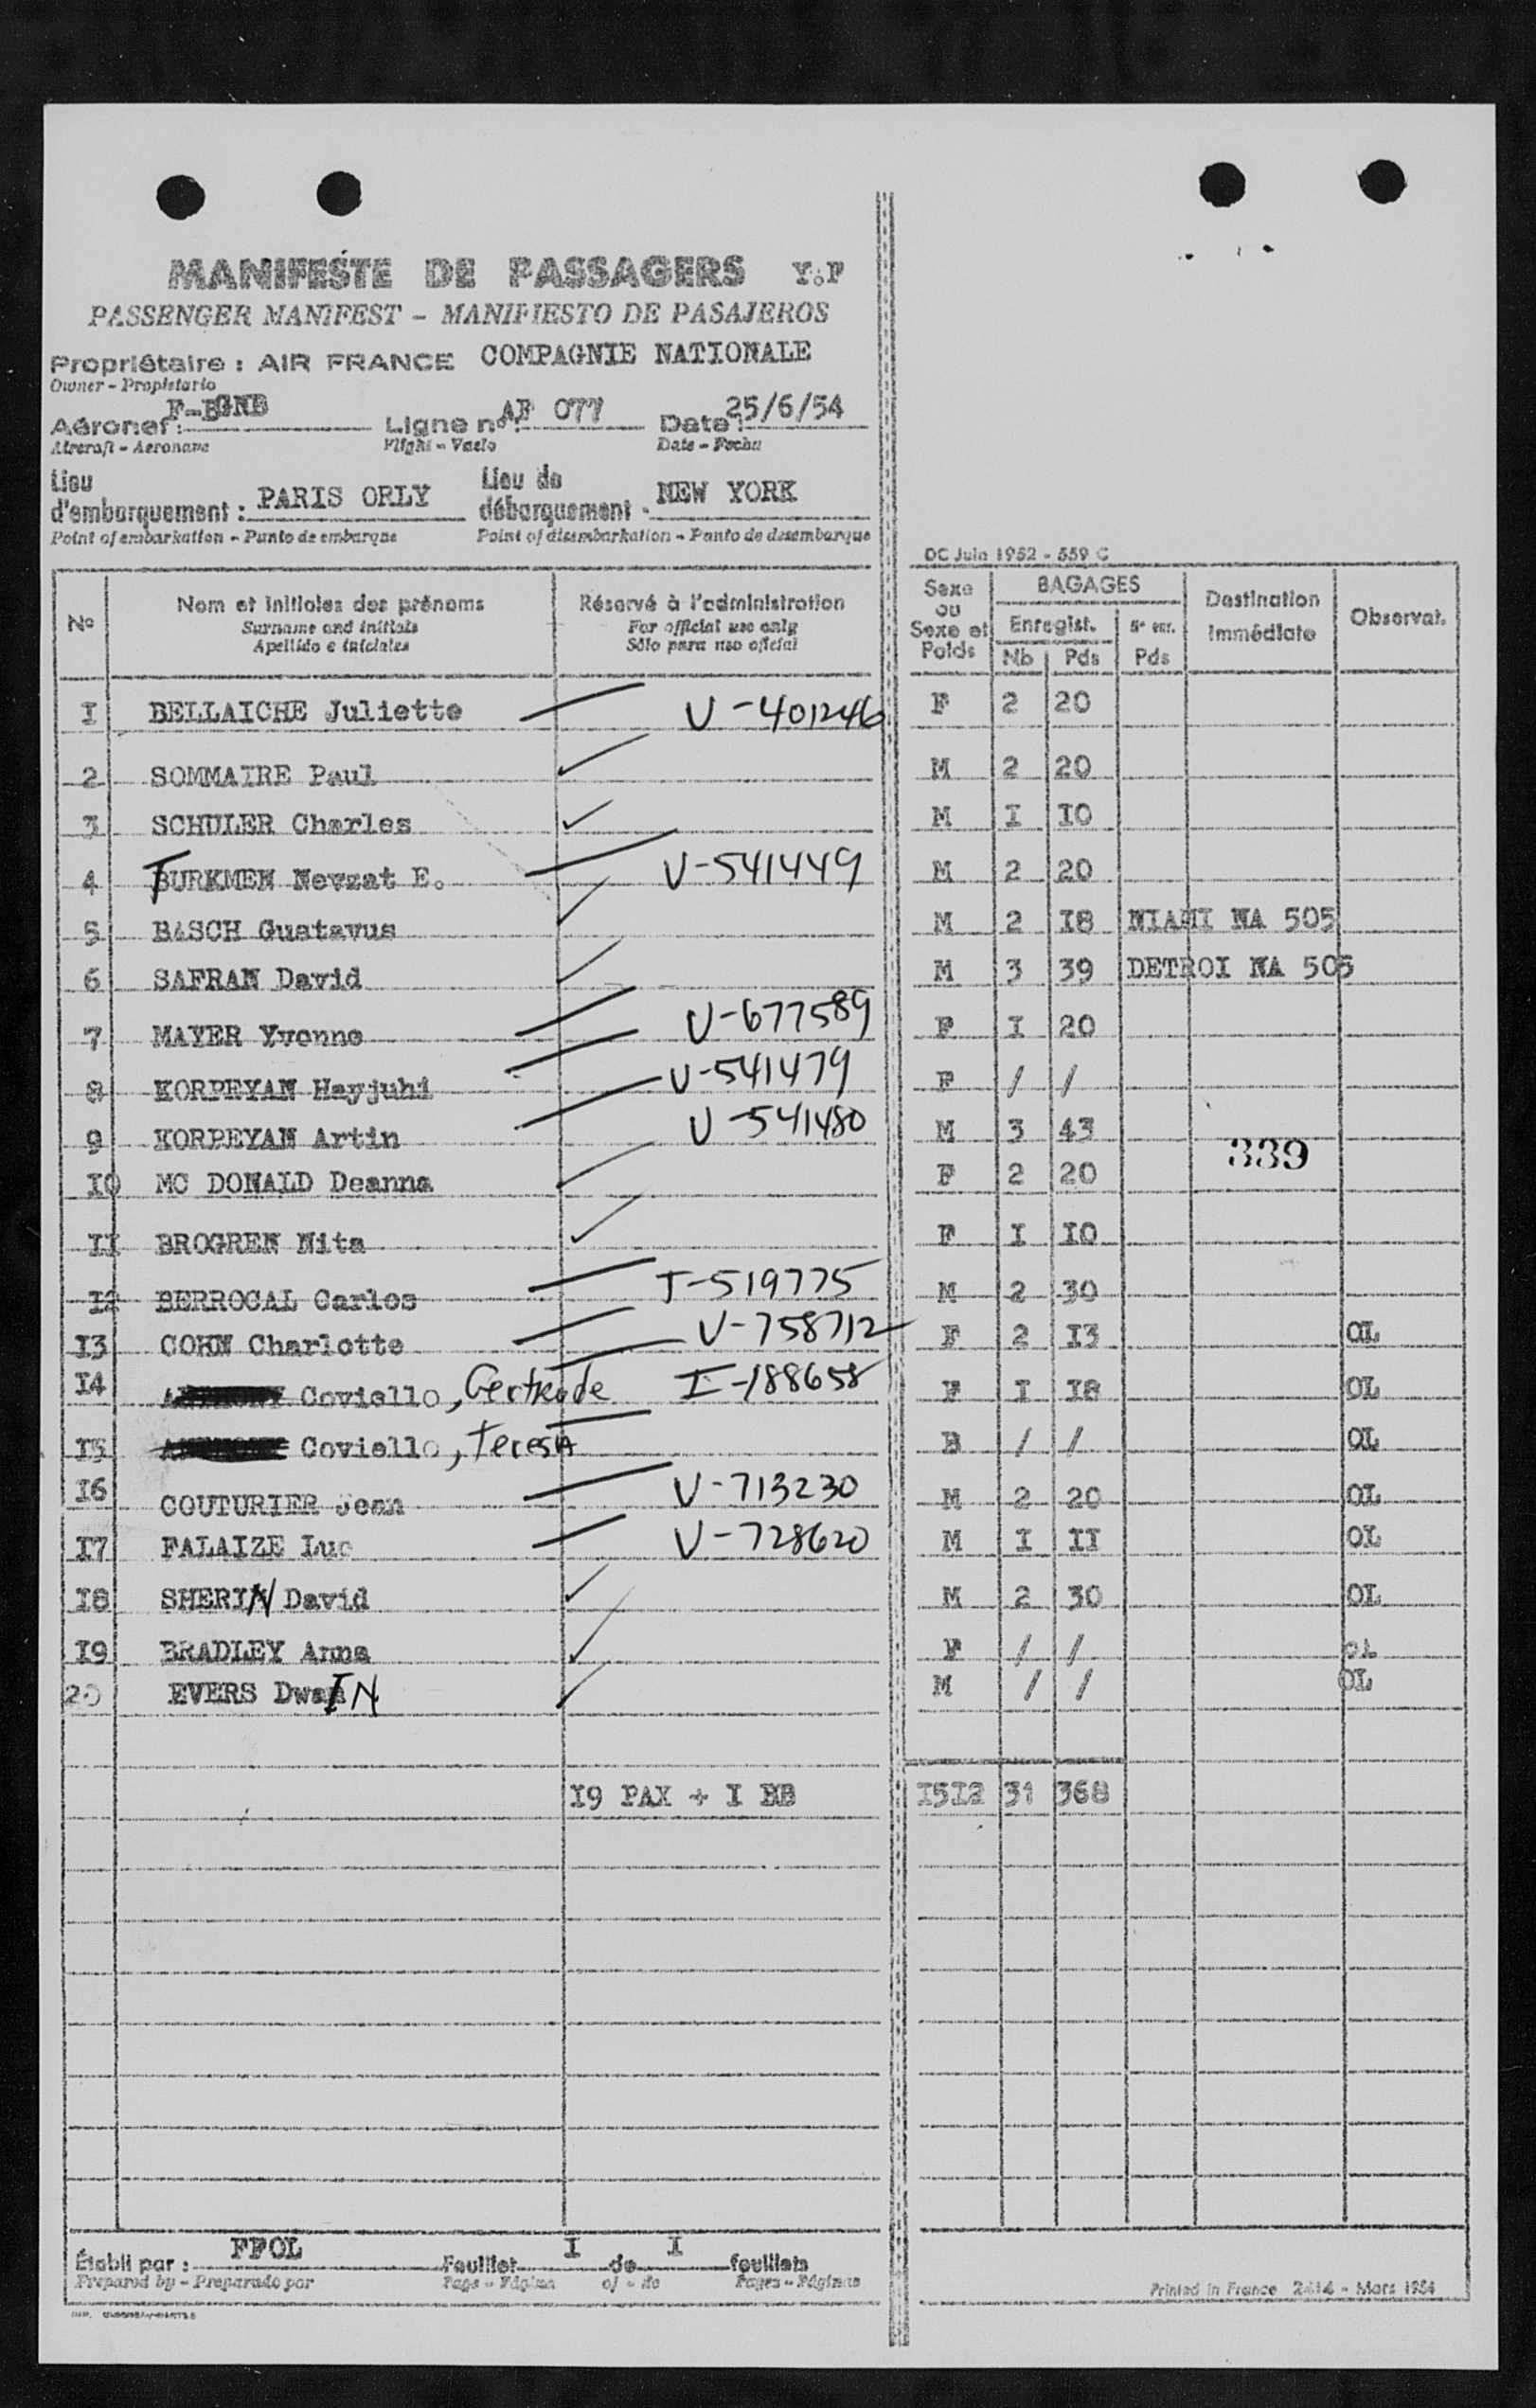 MANIFESTE DE PASSAGERS Y.P
PASSENGER MANIFEST - MANIFIESTO DE PASAJEROS
Propriétaire : AIR FRANCE COMPAGNIE NATIONALE
Owner - Propietario
Aéronef : F-BGNB Ligne n° : AF 077 Date : 25/6/54
Aircraft - Aeronave Flight - Vuelo Date - Fecha
Lieu d'embarquement : PARIS ORLY Lieu de débarquement : NEW YORK
Point of embarkation - Punto de embarque Point of disembarkation - Punto de desembarque
DC Juin 1952 - 559 C
No Nom et initiales des prénoms Réservé à l'administration Sexe ou Sexe et Poids BAGAGES Destination Immédiate Observat.
Surname and initials For official use only Enregist.
Apellido e iniciales Sólo para uso oficial Nb Pds Pds
I BELLAICHE Juliette V-401246 F 2 20
2 SOMMAIRE Paul M 2 20
3 SCHULER Charles M I IO
4 TURKMEN Nevzat E. V-541449 M 2 20
5 BASCH Gustavus M 2 I8 NIAMI NA 505
6 SAFRAN David M 3 39 DETROI NA 505
7 MAYER Yvonne V-677589 F I 20
8 KORPEYAN Hayjuhi V-541479 F / /
9 KORPEYAN Artin V-541480 M 3 43
339
IO MC DONALD Deanna F 2 20
II BROGREN Nita F I IO
I2 BERROCAL Carlos T-519775 M 2 30
I3 COHN Charlotte V-758712 F 2 I3 OL
I4 Coviello, Gertrude I-188658 F I I8 OL
I5 Coviello, Teresa B / / OL
I6 COUTURIER Jean V-713230 M 2 20 OL
I7 FALAIZE Luc V-728620 M I II OL
I8 SHERIN David M 2 30 OL
I9 BRADLEY Anna F / / OL
20 EVERS DwaIN M / / OL
I9 PAX + I BB I5I2 31 368
Établi par : FPOL Feuillet I de I feuillets
Prepared by - Preparado por Page - Página of - de Pages - Páginas
Printed in France 2414 - Mars 1954